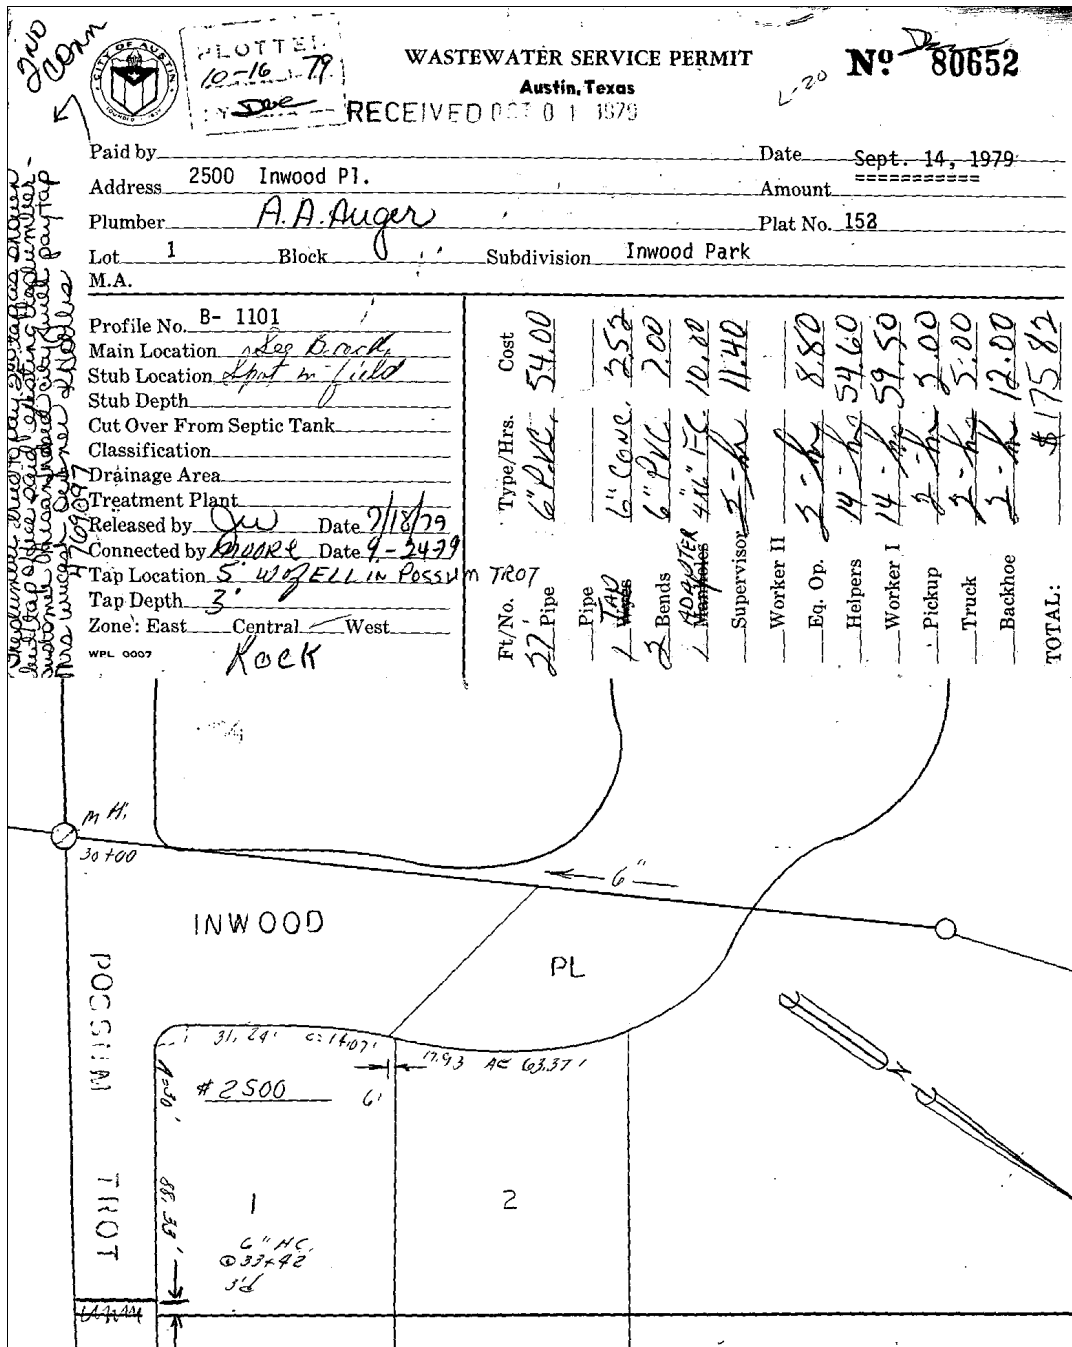 2ND
CONN
CITY OF AUSTIN
FOUNDED 1839
PLOTTED
10-16 79
WASTEWATER SERVICE PERMIT
Austin, Texas
RECEIVED OCT 01 1979
L-20
No 80652
Paid by
Date Sept. 14, 1979
Address 2500 Inwood Pl.
Amount
Plumber A.A. Auger
Plat No. 152
Lot 1 Block Subdivision Inwood Park
M.A.
Profile No. B- 1101
Main Location
Stub Location Spot in field
Stub Depth
Cut Over From Septic Tank
Classification
Drainage Area
Treatment Plant
Released by JW Date 9/18/79
Connected by Moore Date 9-24-79
Tap Location 5' W of ELL IN POSSUM TROT
Tap Depth 3'
Zone: East Central West
WPL 0007
Rock
4769097
Ft/No. Type/Hrs. Cost
27' Pipe 6" PVC. 54.00
Pipe
1 TAP Wyes 6" Conc. 2.52
2 Bends 6" PVC 7.00
1 ADAPTER Manholes 4x6" F-C. 10.00
Supervisor 2-hr 11.40
Worker II
Eq. Op. 2-hr 8.80
Helpers 14-hr 54.60
Worker I 14-hr 59.50
Pickup 2-hr 3.00
Truck 2-hr 5.00
Backhoe 2-hr 12.00
TOTAL: $175.82
M H.
30+00
6"
INWOOD
PL
POSSUM
TROT
31.24' C=14.07'
17.93 A= 63.37'
A=30'
#2500
6'
88.33'
1
2
6" HC.
@33+42
3'd
N